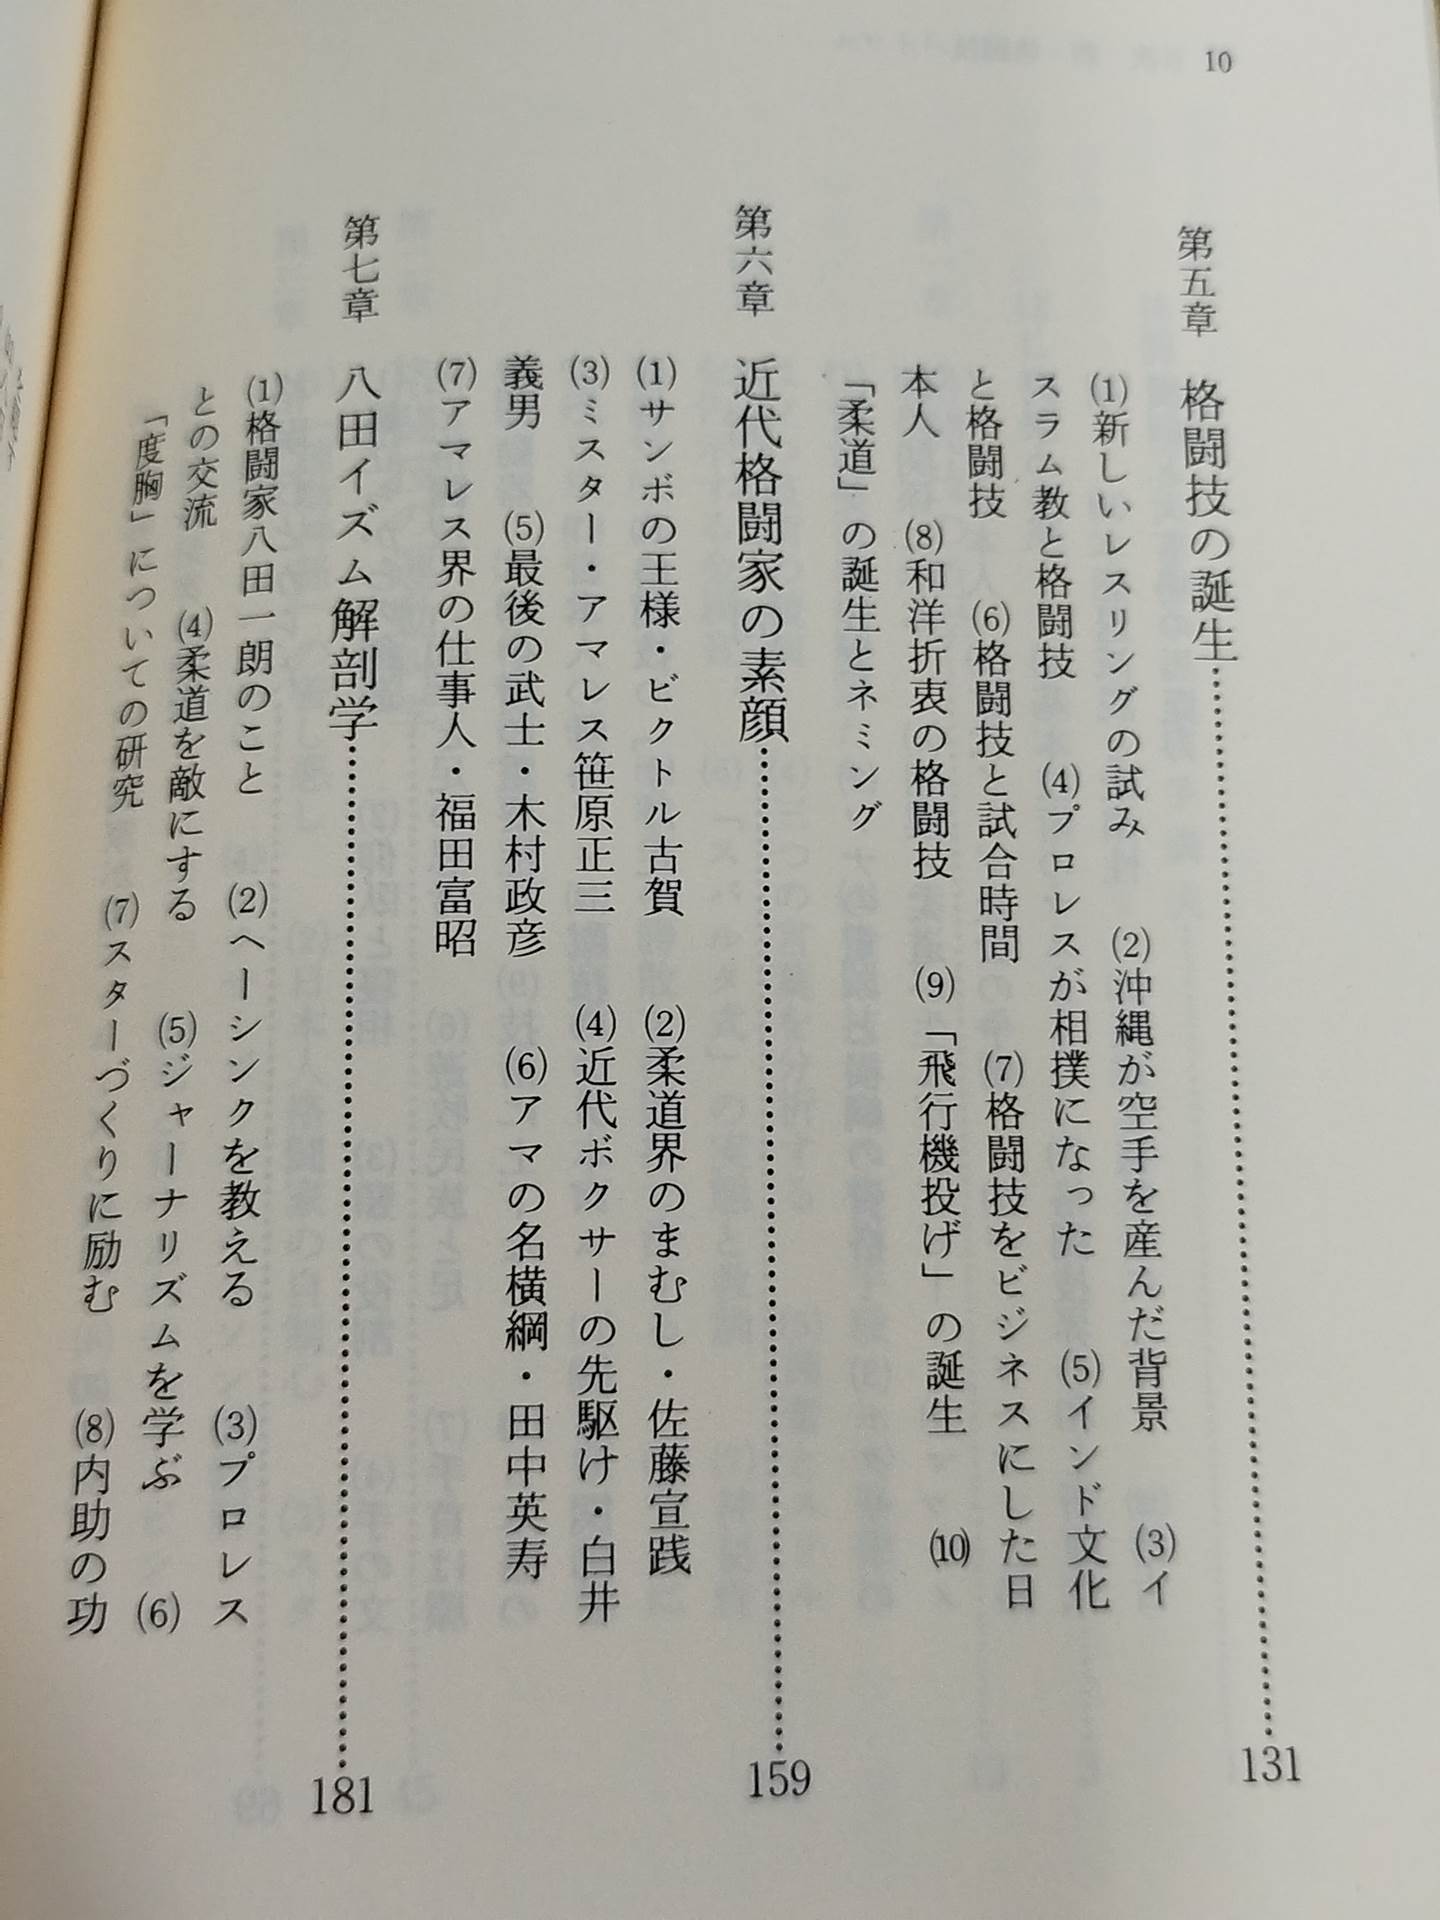 10
第五章 格闘技の誕生……………………131
(1)新しいレスリングの試み (2)沖縄が空手を産んだ背景 (3)イ
スラム教と格闘技 (4)プロレスが相撲になった (5)インド文化
と格闘技 (6)格闘技と試合時間 (7)格闘技をビジネスにした日
本人 (8)和洋折衷の格闘技 (9)「飛行機投げ」の誕生 (10)
「柔道」の誕生とネミング
第六章 近代格闘家の素顔……………………159
(1)サンボの王様・ビクトル古賀 (2)柔道界のまむし・佐藤宣践
(3)ミスター・アマレス笹原正三 (4)近代ボクサーの先駆け・白井
義男 (5)最後の武士・木村政彦 (6)アマの名横綱・田中英寿
(7)アマレス界の仕事人・福田富昭
第七章 八田イズム解剖学……………………181
(1)格闘家八田一朗のこと (2)ヘーシンクを教える (3)プロレス
との交流 (4)柔道を敵にする (5)ジャーナリズムを学ぶ (6)
「度胸」についての研究 (7)スターづくりに励む (8)内助の功